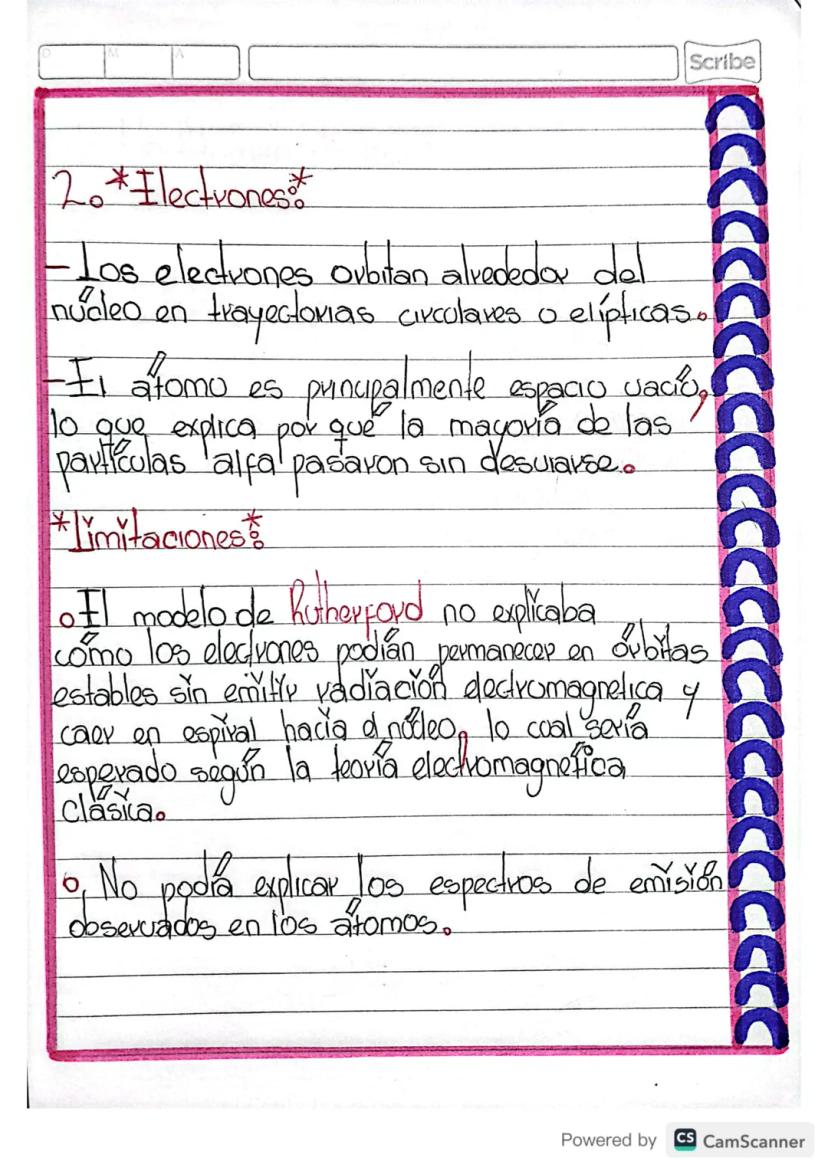 D M A
Scribe
2. *Electrones:*
- Los electrones orbitan alrededor del
núcleo en trayectorias circulares o elípticas.
- El átomo es principalmente espacio vacío,
lo que explica por qué la mayoría de las
partículas alfa pasaron sin desviarse.
*Limitaciones:*
o El modelo de Rutherford no explicaba
cómo los electrones podían permanecer en órbitas
estables sin emitir radiación electromagnetica y
caer en espiral hacia el núcleo, lo cual sería
esperado según la teoría electromagnética
clásica.
o, No podía explicar los espectros de emisión
observados en los átomos.
Powered by CS CamScanner